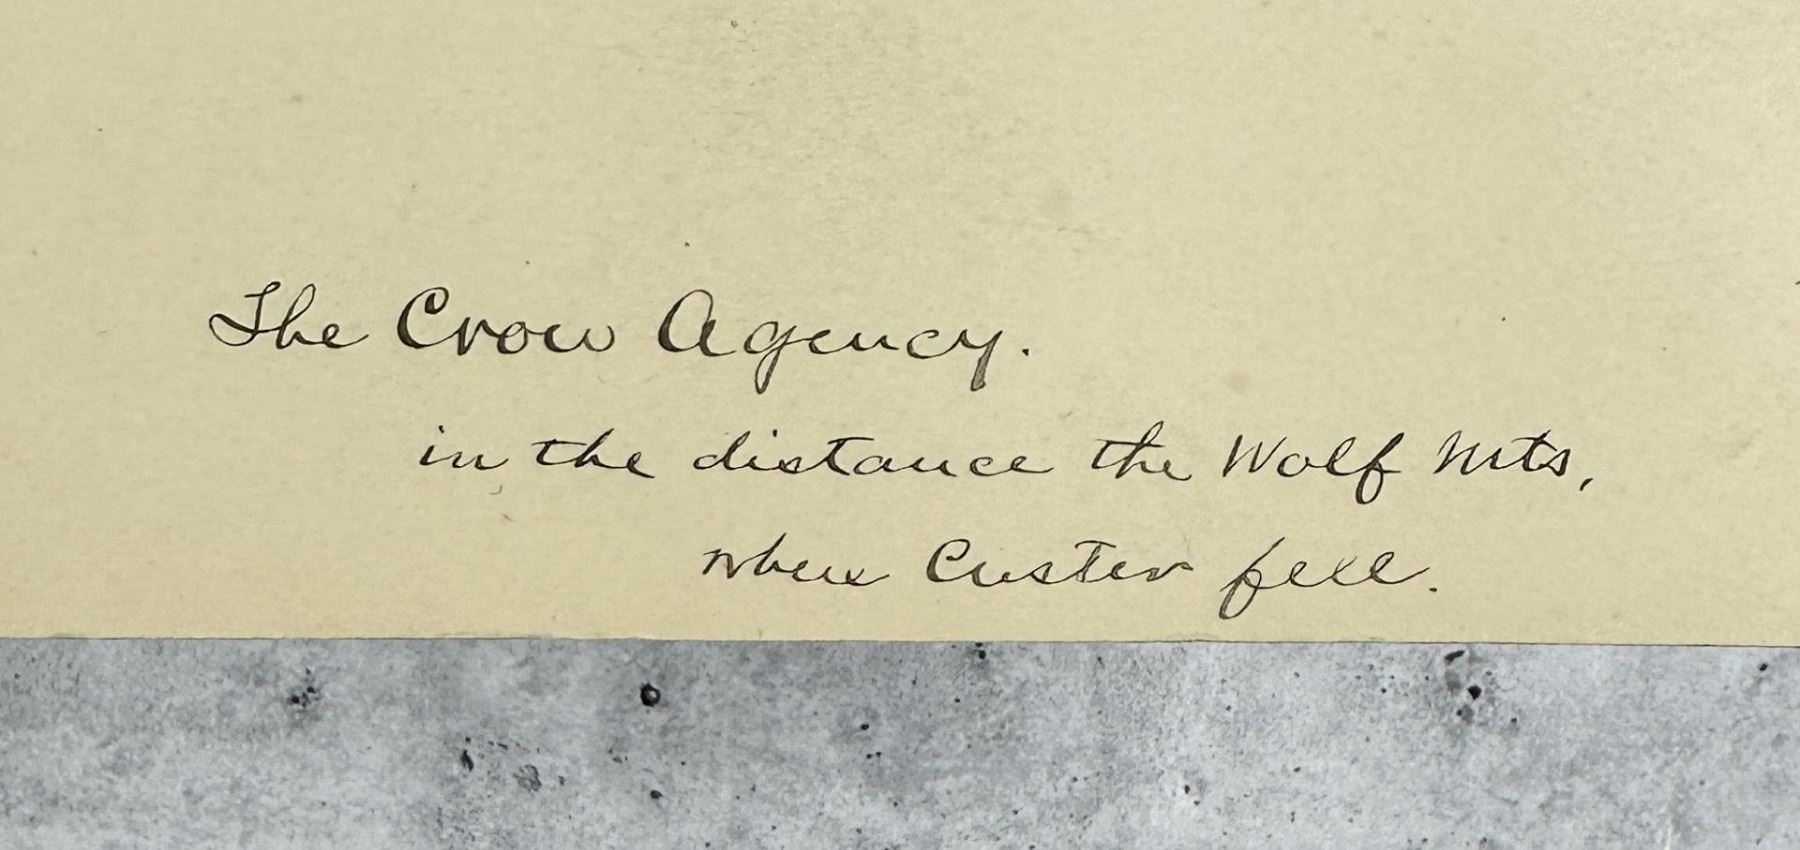 The Crow Agency.
in the distance the Wolf Mts,
where Custer fell.